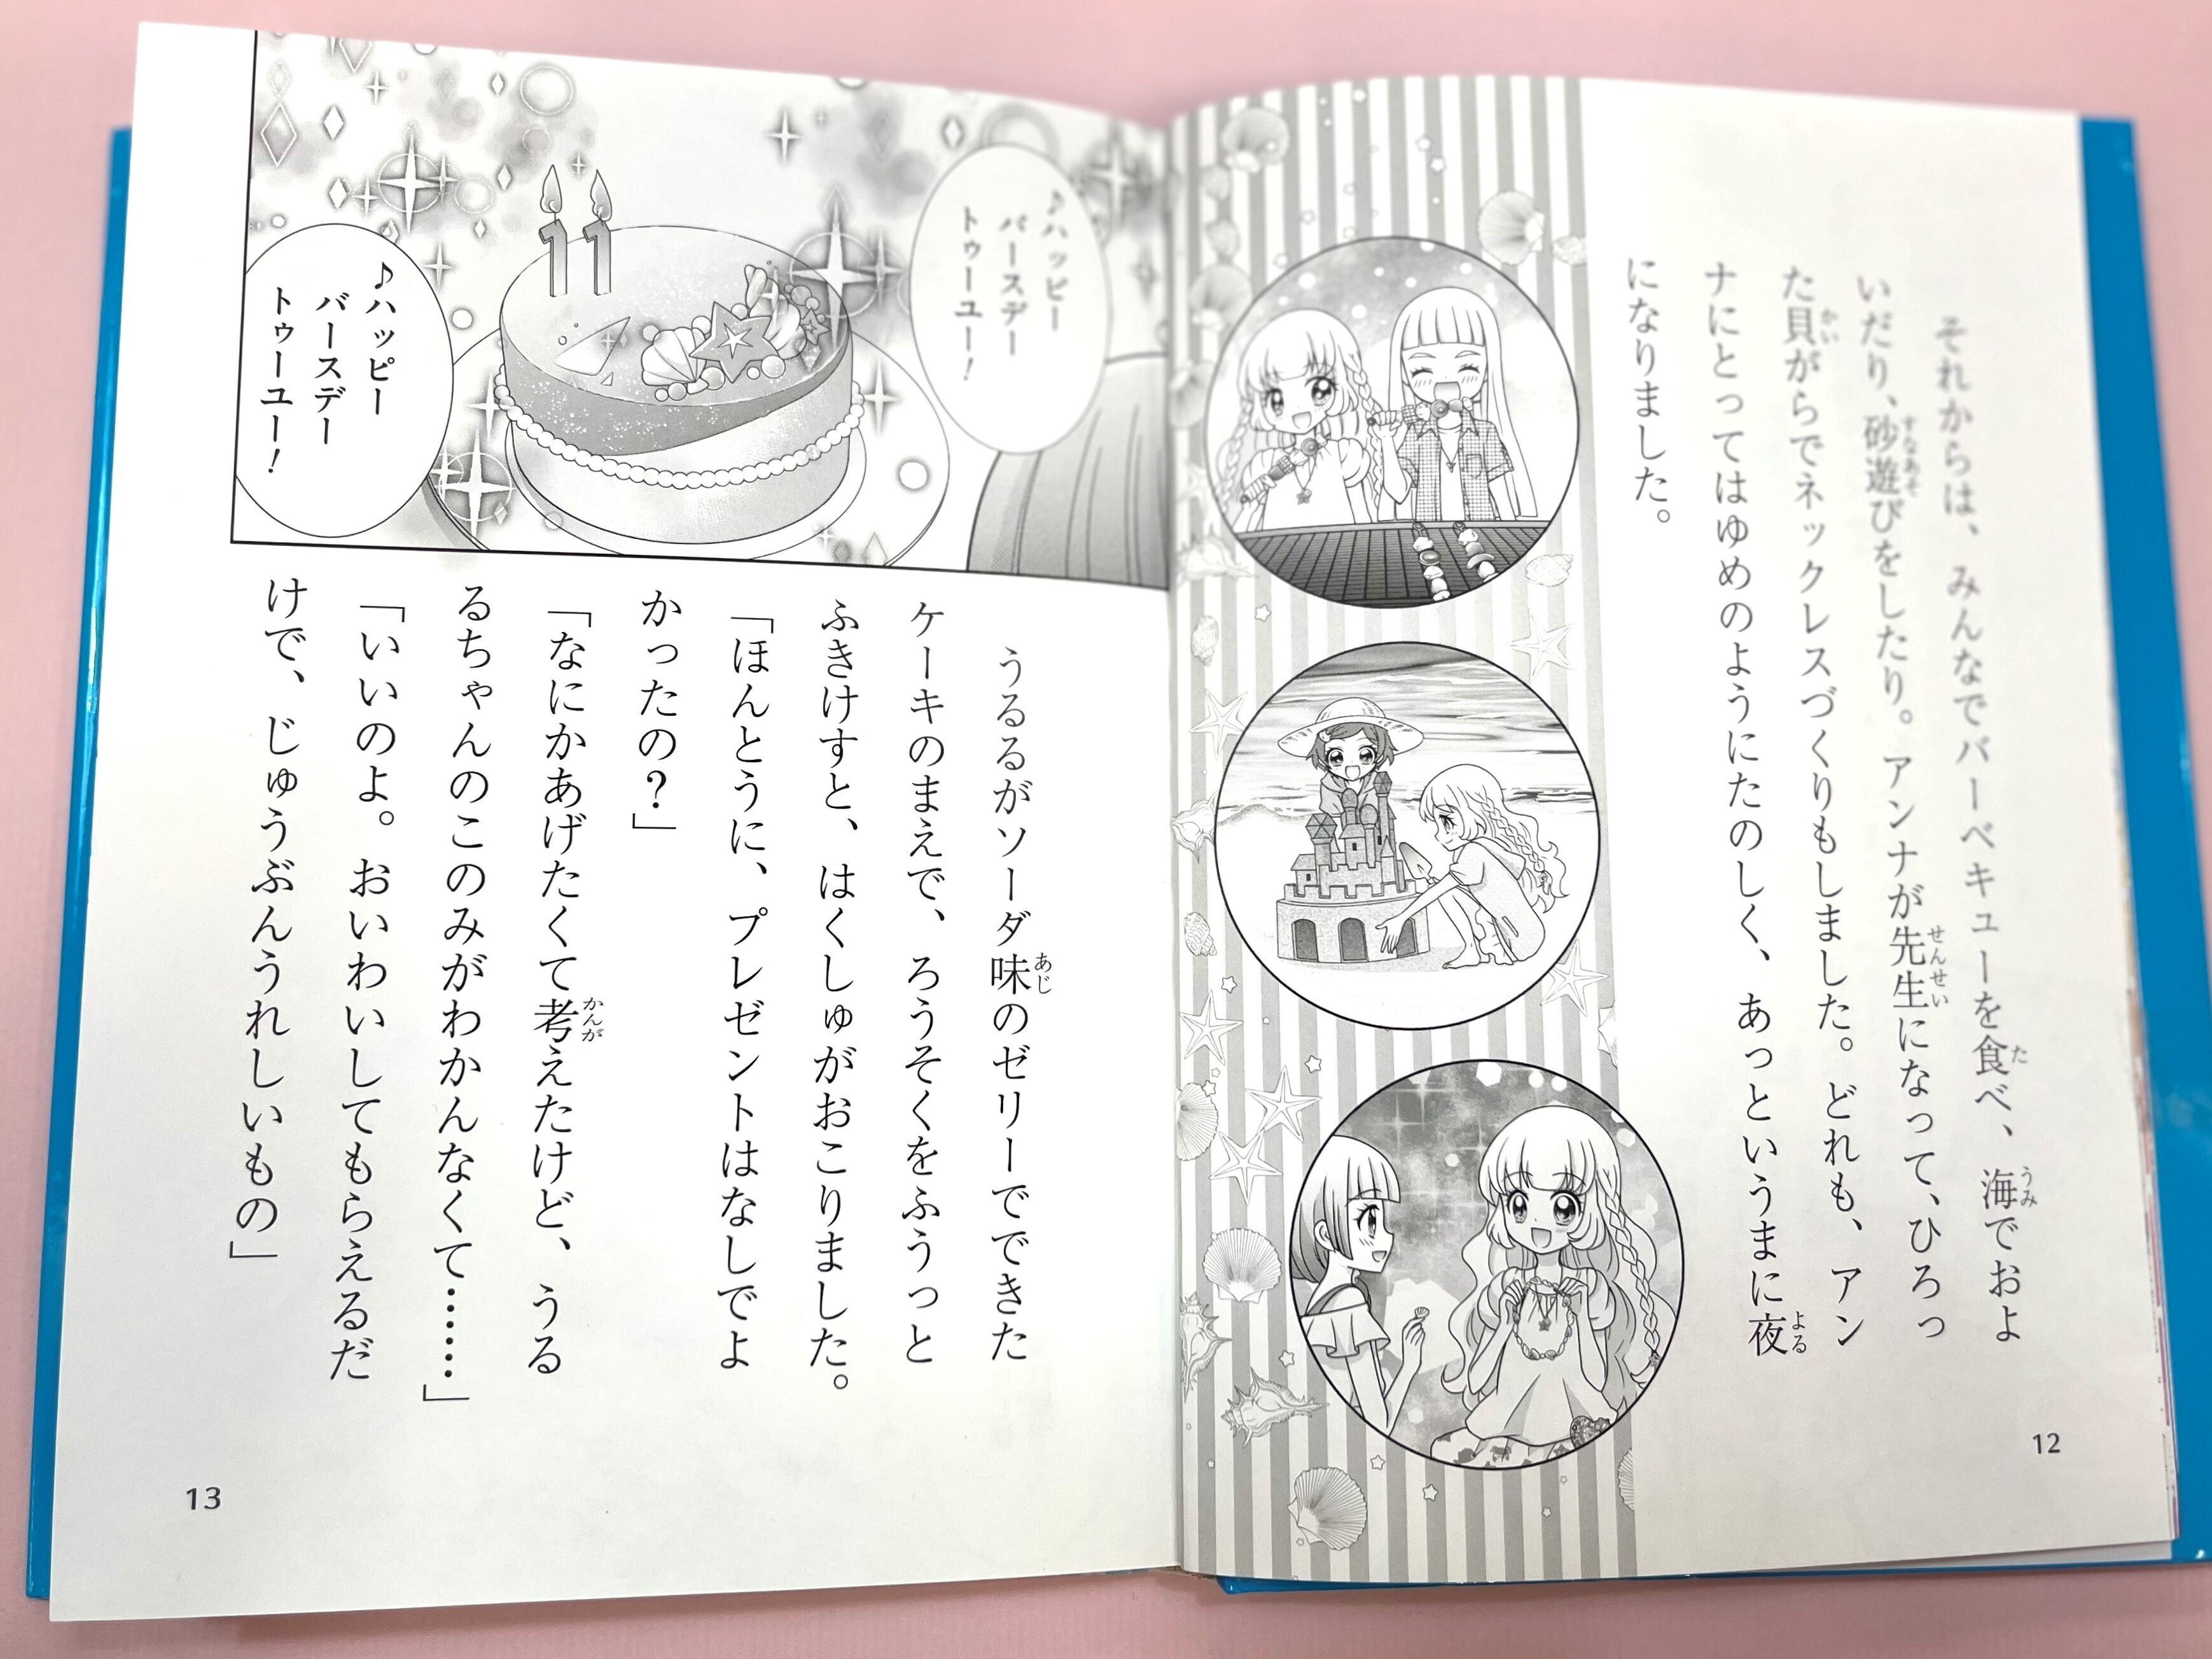 それからは、みんなでバーベキューを食べ、海でおよ
いだり、砂遊びをしたり。アンナが先生になって、ひろっ
た貝がらでネックレスづくりもしました。どれも、アン
ナにとってはゆめのようにたのしく、あっというまに夜
になりました。
12
♪ハッピー
バースデー
トゥーユー!
♪ハッピー
バースデー
トゥーユー!
11
うるるがソーダ味のゼリーでできた
ケーキのまえで、ろうそくをふうっと
ふきけすと、はくしゅがおこりました。
「ほんとうに、プレゼントはなしでよ
かったの?」
「なにかあげたくて考えたけど、うる
るちゃんのこのみがわかんなくて……」
「いいのよ。おいわいしてもらえるだ
けで、じゅうぶんうれしいもの」
13